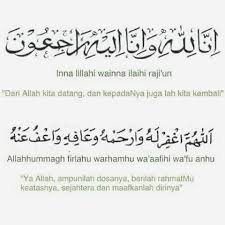 إِنَّا لِلَّهِ وَإِنَّا إِلَيْهِ رَاجِعُونَ
Inna lillahi wainna ilaihi raji'un
"Dari Allah kita datang, dan kepadaNya juga lah kita kembali"
اَللّٰهُمَّ اغْفِرْ لَهُ وَارْحَمْهُ وَعَافِهِ وَاعْفُ عَنْهُ
Allahhummagh firlahu warhamhu wa'aafihi wa'fu anhu
"Ya Allah, ampunilah dosanya, berilah rahmatMu
keatasnya, sejahtera dan maafkanlah dirinya"